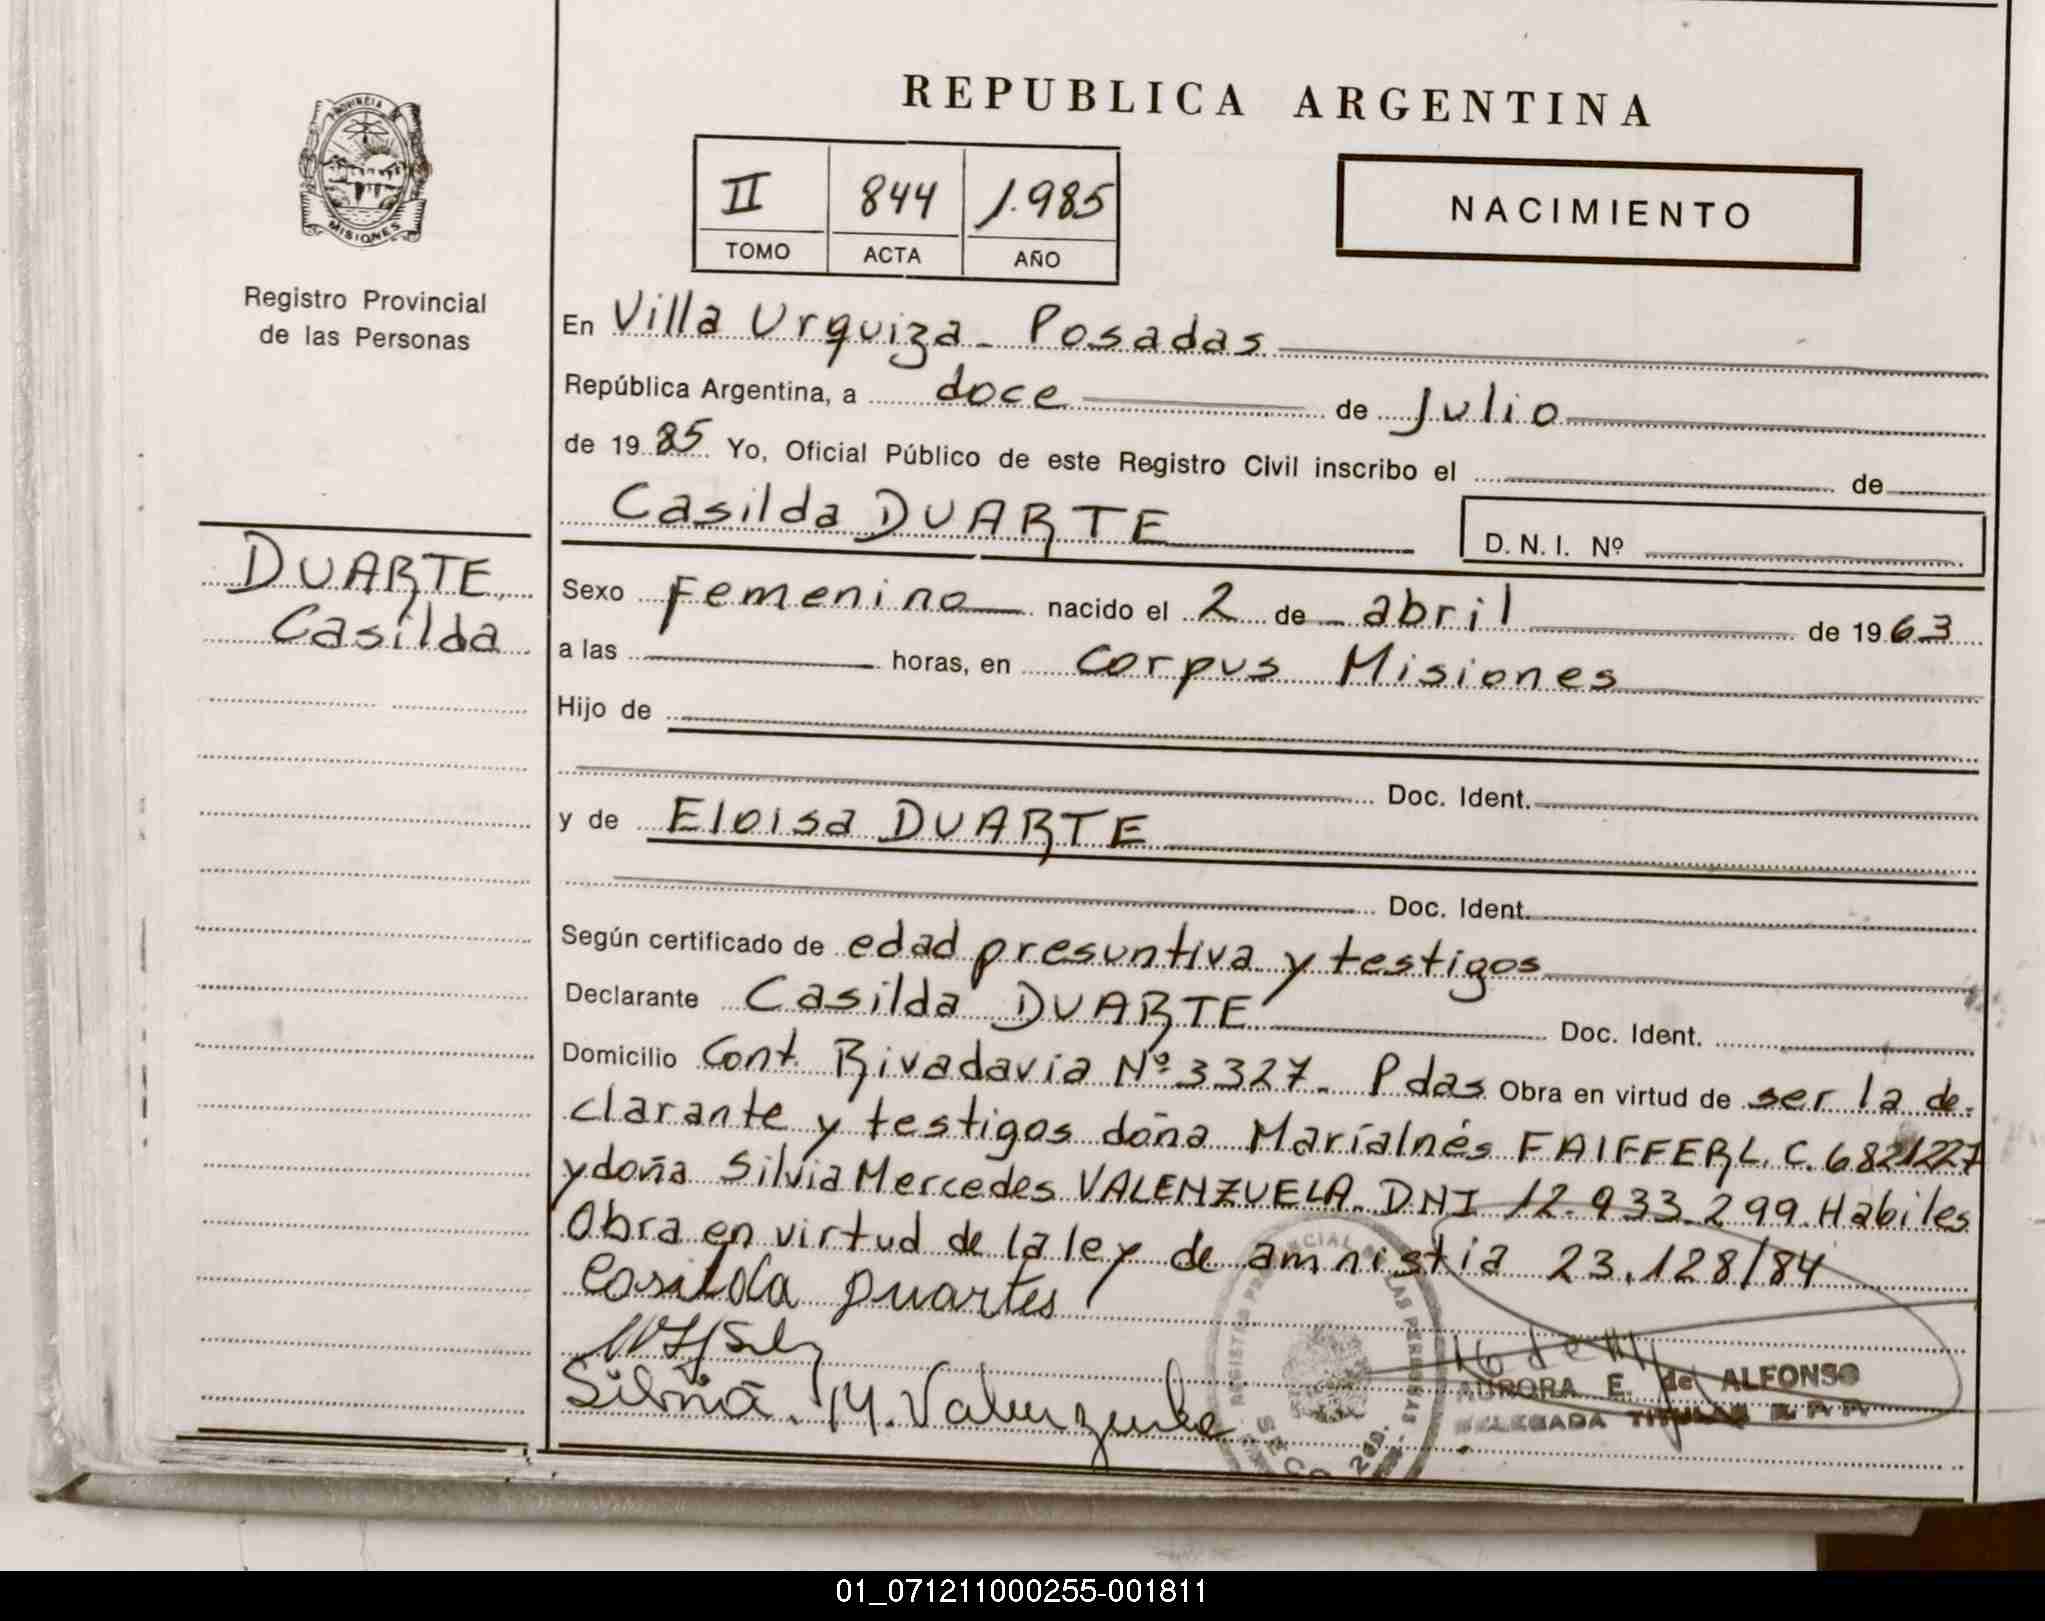 REPUBLICA ARGENTINA
PROVINCIA DE
MISIONES
II 844 1.985
TOMO ACTA AÑO
NACIMIENTO
Registro Provincial
de las Personas
En Villa Urquiza - Posadas
República Argentina, a doce de Julio
de 19 85 Yo, Oficial Público de este Registro Civil inscribo el de
Casilda DUARTE
D. N. I. Nº
DUARTE,
Casilda
Sexo Femenino nacido el 2 de abril de 19 63
a las horas, en Corpus Misiones
Hijo de
Doc. Ident.
y de Eloisa DUARTE
Doc. Ident.
Según certificado de edad presuntiva y testigos
Declarante Casilda DUARTE Doc. Ident.
Domicilio Cont. Rivadavia Nº 3327 - Pdas Obra en virtud de ser la de-
clarante y testigos doña María Inés FAIFFER L. C. 6821227
y doña Silvia Mercedes VALENZUELA. DNI 12.933.299. Habiles
Obra en virtud de la ley de amnistia 23.128/84
Casilda Duartes
Silvia. M. Valenzuela
AURORA E. de ALFONSO
DELEGADA TITULAR R. P. P.
01_071211000255-001811